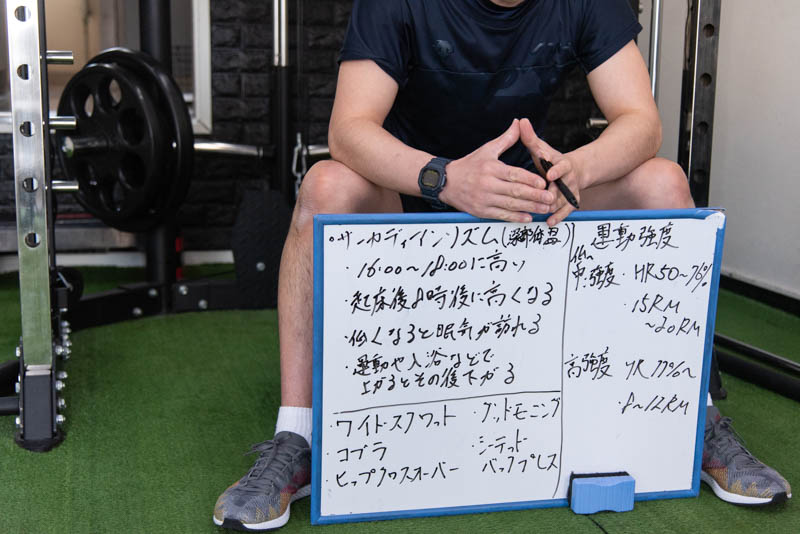 ・サーカディアンリズム(深部体温)
・16:00〜18:00に高い
・起床後8時後に高くなる
・低くなると眠気が訪れる
・運動や入浴などで
上がるとその後下がる
・ワイドスクワット
・コブラ
・ヒップクロスオーバー
・グッドモーニング
・シーテッド
バックプレス
運動強度
低〜
中強度・HR50〜76%
・15RM
〜20RM
高強度 HR77%〜
・8〜12RM